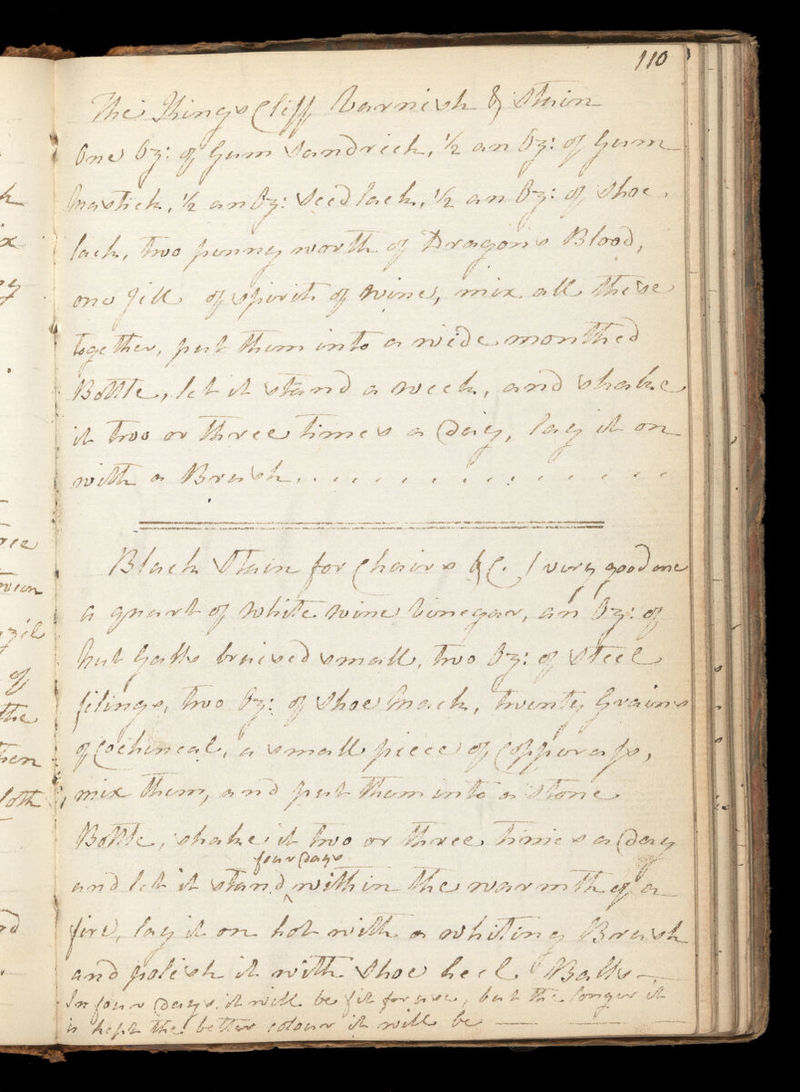 110
The Kings Cliff Varnish & Stain
One Oz: of Gum Sandrick, ½ an Oz: of Gum
Mastick, ½ an Oz: Seed lack, ½ an Oz: of Shoe
lack, two penny worth of Dragons Blood,
one Jill of spirits of wine, mix all these
together, put them into a wide mouthed
Bottle, let it stand a week, and shake
it two or three times a Day, lay it on
with a Brush
Black Stain for Chairs &C. / very good one
a quart of White wine Vinegar, an Oz: of
Nut Galls bruised small, two Oz: of Steel
filings, two Oz: of Shoe Mack, twenty Grains
of Cochineal, a small piece of Copperass,
mix them, and put them into a Stone
Bottle, shake it two or three times a Day
four Days
and let it stand ^ within the warmth of a
fire, lay it on hot with a whiting Brush
and polish it with Shoe heel Balls —
In four Days it will be fit for use, but the longer it
is kept the better colour it will be —